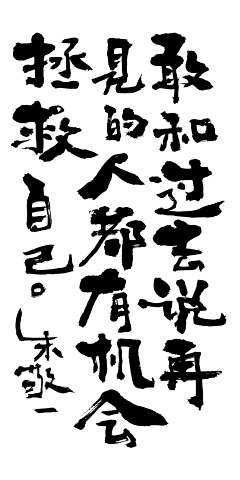 敢和过去说再
見的人都有机会
拯救自己。
朱敬一